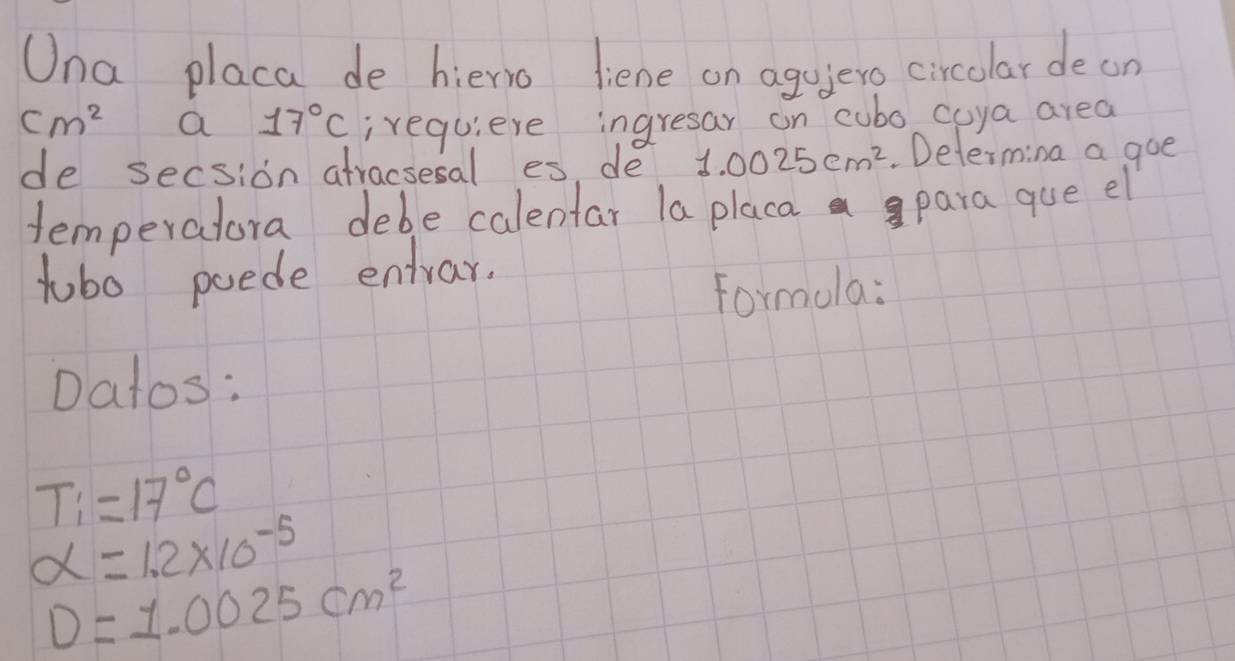 Una placa de hierro tiene un agujero circular de un
cm² a 17°C; requiere ingresar un cubo cuya area
de secsión atracsesal es de 1.0025cm². Determina a que
temperatura debe calentar la placa para que el
tubo puede entrar.
Formula:
Datos:
Ti=17°C
α=1.2×10⁻⁵
D=1.0025 cm²